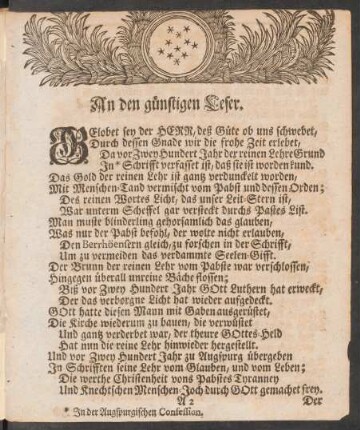 An den günstigen Leser.
GElobet sey der HERR, deß Güte ob uns schwebet,
Durch dessen Gnade wir die frohe Zeit erlebet,
Da vor Zwey Hundert Jahr der reinen Lehre Grund
In * Schrifft verfasset ist, daß sie ist worden kund.
Das Gold der reinen Lehr ist gantz verdunckelt worden,
Mit Menschen-Tand vermischt vom Pabst und dessen Orden;
Des reinen Wortes Licht, das unser Leit-Stern ist,
War unterm Scheffel gar versteckt durchs Pabstes List.
Man muste blinderling gehorsamlich das glauben,
Was nur der Pabst befohl, der wolte nicht erlauben,
Den Berrhöensern gleich, zu forschen in der Schrifft,
Um zu vermeiden das verdammte Seelen-Gifft.
Der Brunn der reinen Lehr vom Pabste war verschlossen,
Hingegen überall unreine Bäche flossen;
Biß vor Zwey Hundert Jahr GOtt Luthern hat erweckt,
Der das verborgne Licht hat wieder aufgedeckt.
GOtt hatte diesen Mann mit Gaben ausgerüstet,
Die Kirche wiederum zu bauen, die verwüstet
Und gantz verderbet war, der theure GOttes-Held
Hat nun die reine Lehr hinwieder hergestellt.
Und vor Zwey Hundert Jahr zu Augspurg übergeben
In Schrifften seine Lehr vom Glauben, und vom Leben;
Die werthe Christenheit vons Pabstes Tyranney
Und Knechtschen Menschen-Joch durch GOtt gemachet frey.
A 2 Der
* In der Augspurgischen Confession.